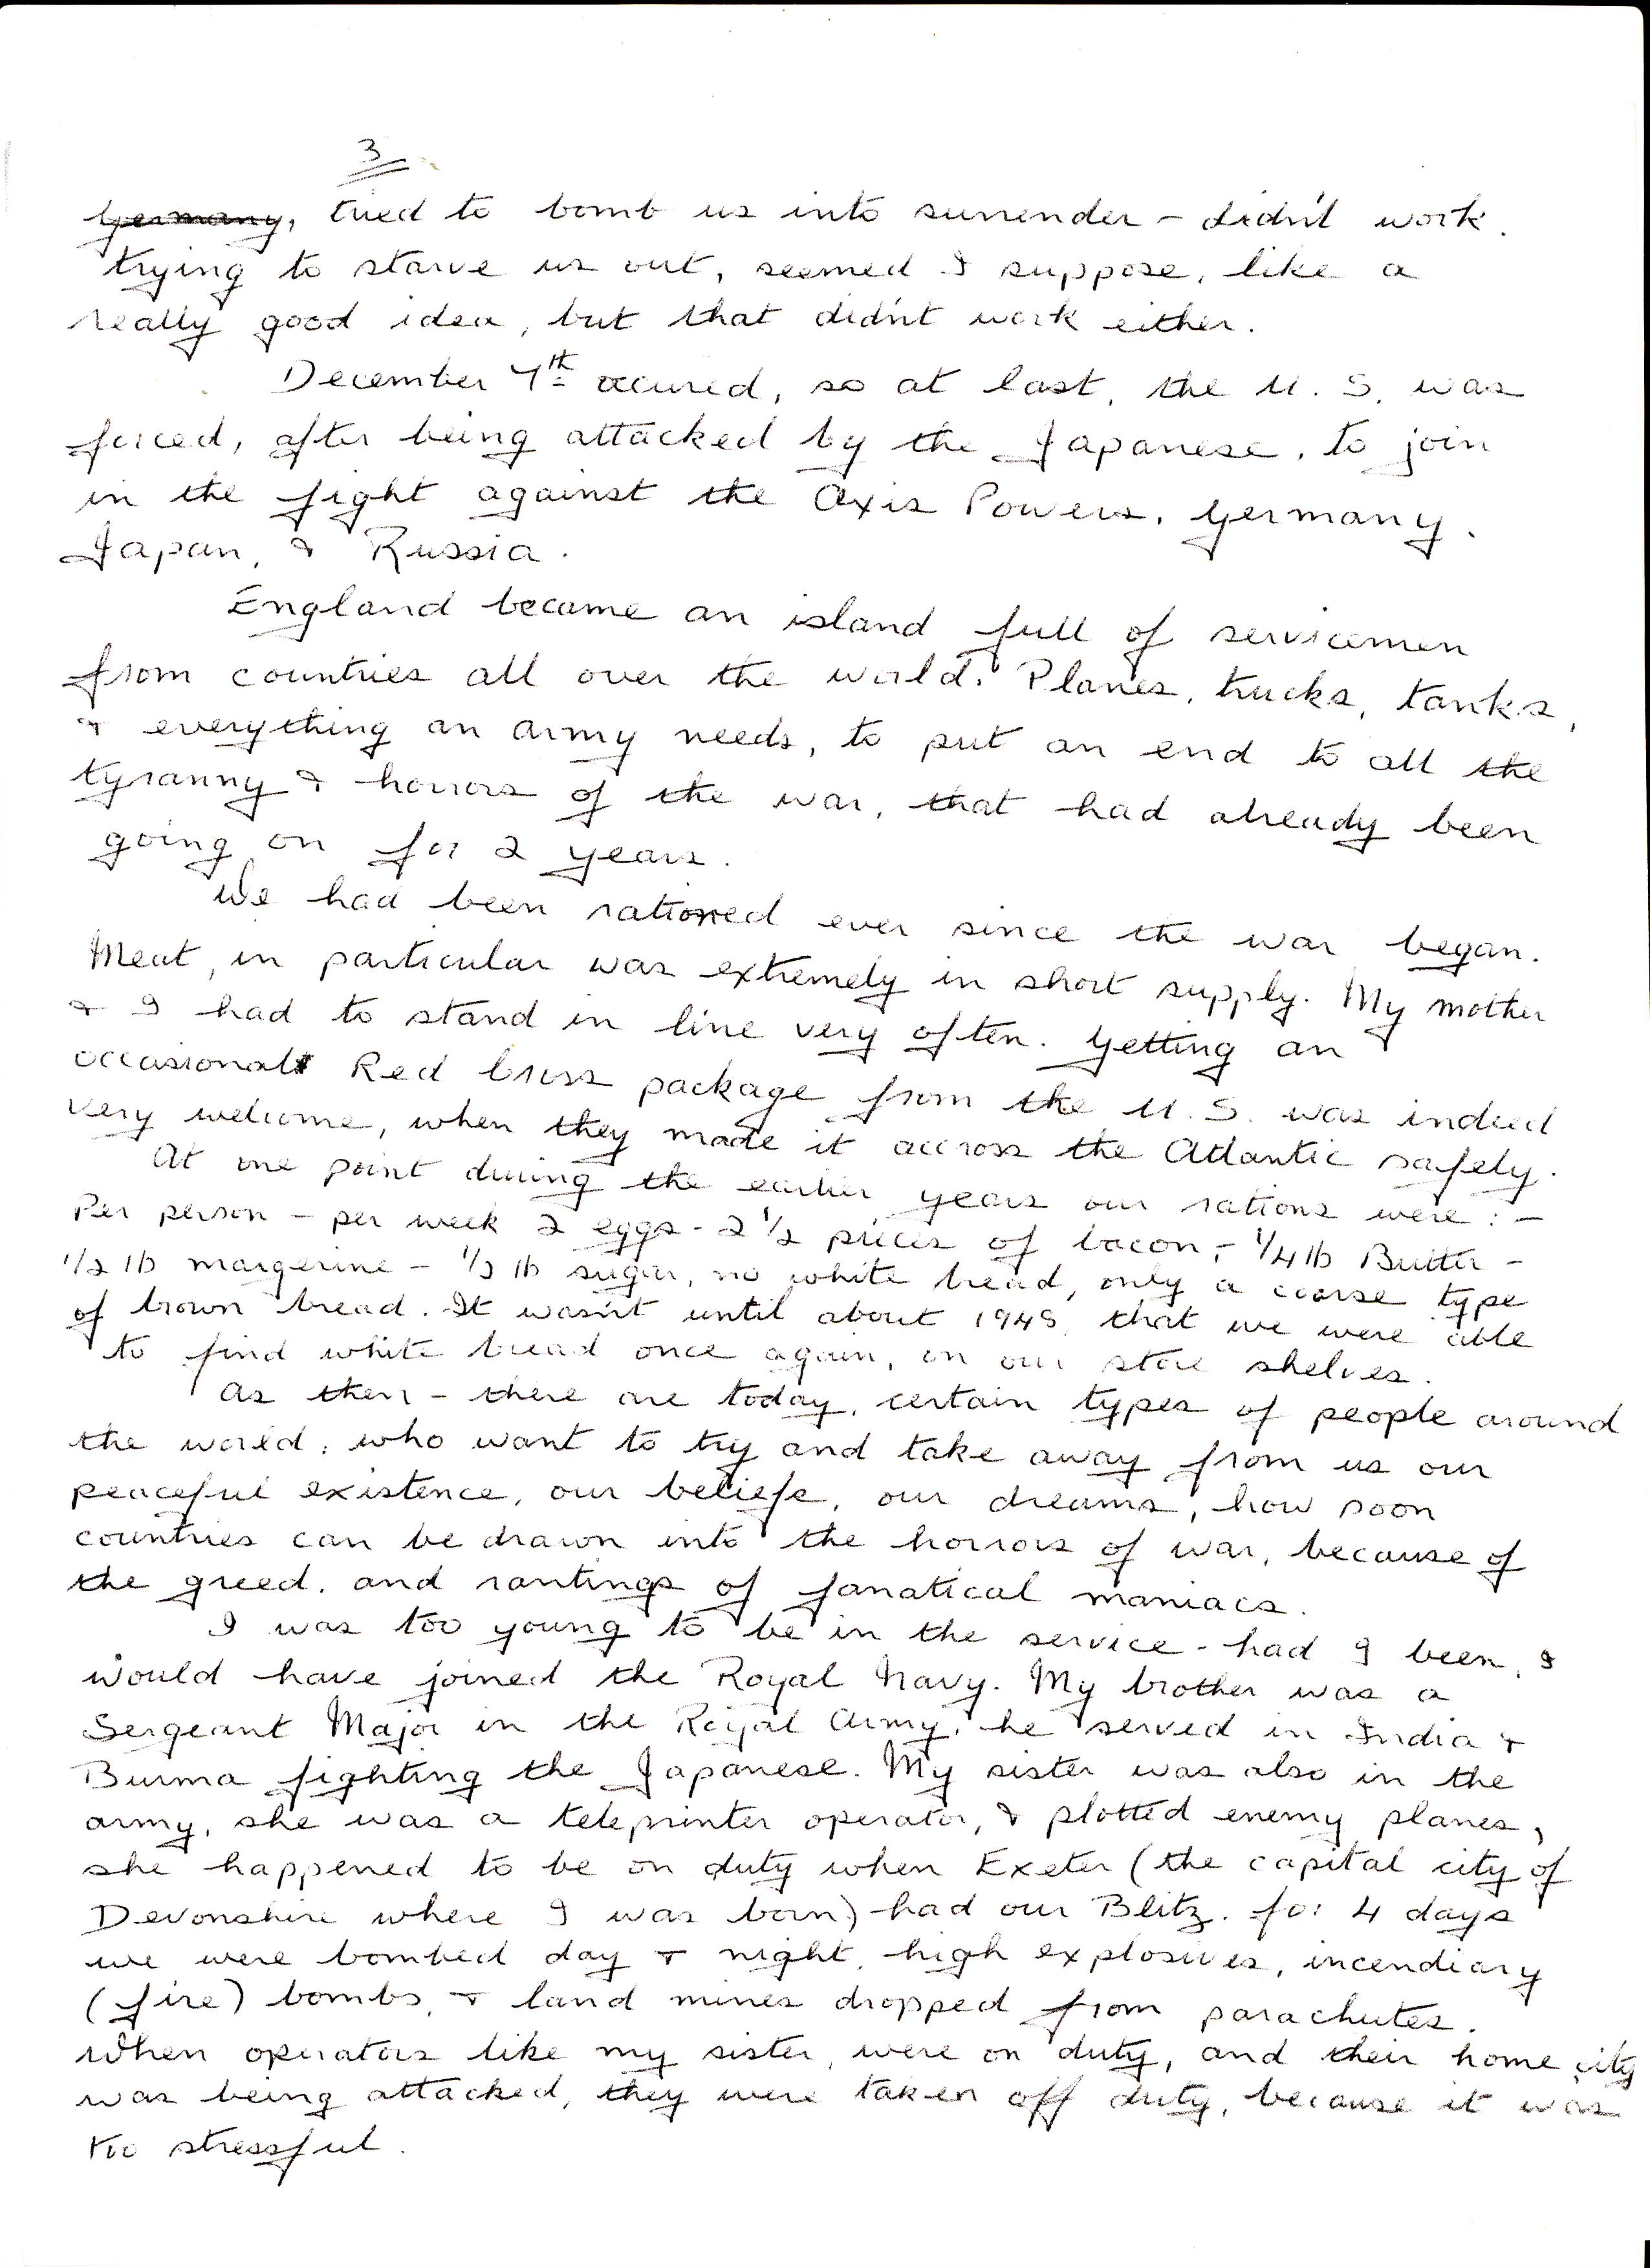 3
Germany, tried to bomb us into surrender - didn't work.
trying to starve us out, seemed I suppose, like a
really good idea, but that didn't work either.
December 7th occured, so at last, the U.S. was
forced, after being attacked by the Japanese, to join
in the fight against the Axis Powers, Germany,
Japan, & Russia.
England became an island full of servicemen
from countries all over the world. Planes, trucks, tanks,
& everything an army needs, to put an end to all the
tyranny & horrors of the war, that had already been
going on for 2 years.
We had been rationed ever since the war began.
Meat, in particular was extremely in short supply. My mother
& I had to stand in line very often. Getting an
occasional Red Cross package from the U.S. was indeed
very welcome, when they made it accross the Atlantic safely.
At one point during the earlier years our rations were :-
Per person - per week 2 eggs - 2 1/2 pieces of bacon, - 1/4 lb Butter -
1/2 lb margerine - 1/2 lb sugar, no white bread, only a coarse type
of brown bread. It wasn't until about 1948, that we were able
to find white bread once again, on our store shelves.
As then - there are today, certain types of people around
the world, who want to try and take away from us our
peaceful existence, our beliefs, our dreams, how soon
countries can be drawn into the horrors of war, because of
the greed, and rantings of fanatical maniacs.
I was too young to be in the service - had I been, I
would have joined the Royal Navy. My brother was a
Sergeant Major in the Royal Army, he served in India &
Burma fighting the Japanese. My sister was also in the
army, she was a teleprinter operator, & plotted enemy planes,
she happened to be on duty when Exeter (the capital city of
Devonshire where I was born) had our Blitz. for 4 days
we were bombed day & night, high explosives, incendiary
(fire) bombs, & land mines dropped from parachutes.
When operators like my sister, were on duty, and their home city
was being attacked, they were taken off duty, because it was
too stressful.